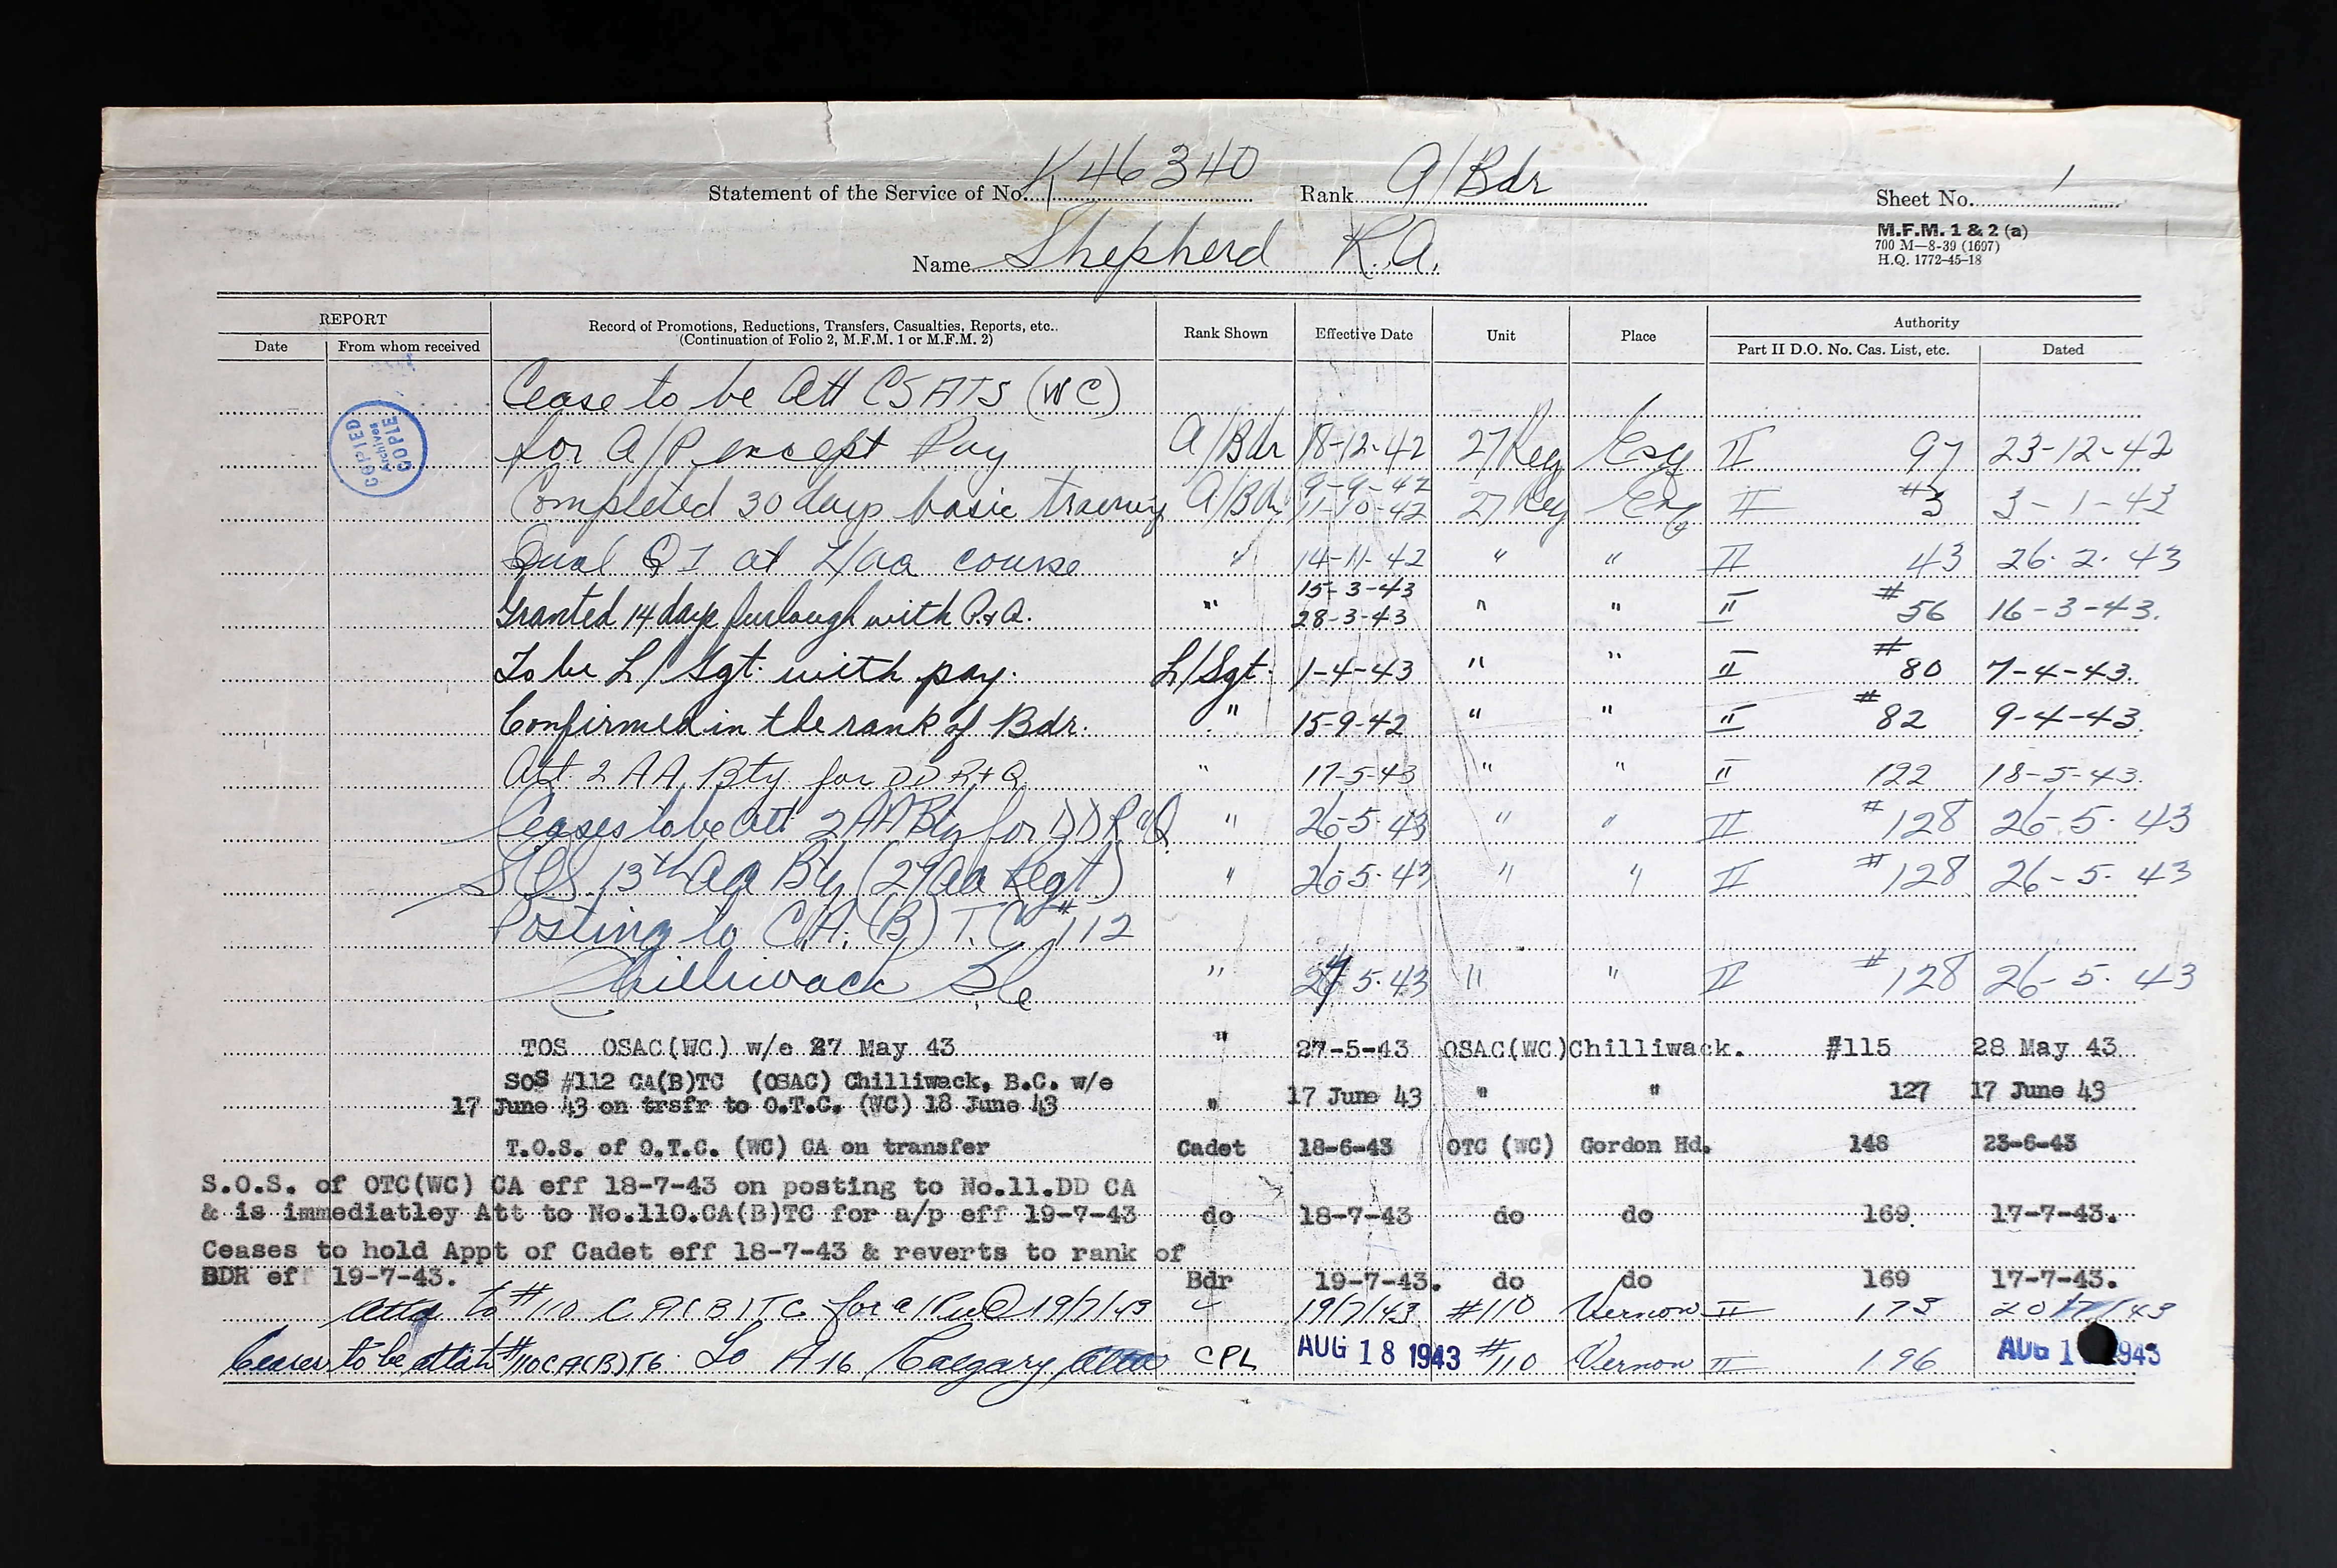 Statement of the Service of No. K 46340 Rank A/Bdr Sheet No. 1
Name Shepherd R.A.
M.F.M. 1 & 2 (a)
700 M—8-39 (1607)
H.Q. 1772-45-18
REPORT
Date From whom received
Record of Promotions, Reductions, Transfers, Casualties, Reports, etc..
(Continuation of Folio 2, M.F.M. 1 or M.F.M. 2)
Rank Shown Effective Date Unit Place
Authority
Part II D.O. No. Cas. List, etc. Dated
COPIED
Archives
COPIE
Cease to be Att CSATS (WC)
for A/P except Pay A/Bdr 18-12-42 27 Reg Esq II 97 23-12-42
Completed 30 days basic training A/Bdr 9-9-42 11-10-42 27 Reg Esq II #3 3-1-43
Qual Q I at L/aa course " 14-11-42 " " II 43 26.2.43
Granted 14 days furlough with R.&Q. " 15-3-43 28-3-43 " " II #56 16-3-43.
To be L/Sgt. with pay. L/Sgt. 1-4-43 " " II #80 7-4-43.
Confirmed in the rank of Bdr. " 15-9-42 " " II #82 9-4-43.
Att. 2 AA Bty for DD R+Q " 17-5-43 " " II 122 18-5-43.
Ceases to be att 2 AA Bty for DD R & Q " 26-5-43 " " II #128 26-5-43
SOS 13th Aa Bty (27 aa Regt) " 26-5-43 " " II #128 26-5-43
Posting to C.A.(B) T.C. #112
Chilliwack Bc " 27-5-43 " " II #128 26-5-43
TOS OSAC(WC) w/e 27 May 43 " 27-5-43 OSAC(WC) Chilliwack. #115 28 May 43
SOS #112 CA(B)TC (OSAC) Chilliwack, B.C. w/e
17 June 43 on trsfr to O.T.C. (WC) 18 June 43 " 17 June 43 " " 127 17 June 43
T.O.S. of O.T.C. (WC) CA on transfer Cadet 18-6-43 OTC (WC) Gordon Hd. 148 23-6-43
S.O.S. of OTC(WC) CA eff 18-7-43 on posting to No.11.DD CA
& is immediatley Att to No.110.CA(B)TC for a/p eff 19-7-43 do 18-7-43 do do 169. 17-7-43.
Ceases to hold Appt of Cadet eff 18-7-43 & reverts to rank of
BDR eff 19-7-43. Bdr 19-7-43. do do 169 17-7-43.
Attd to #110 CA(B)TC for a/P 19/7/43 " 19/7/43 #110 Vernon II 173 20/7/43
Ceases to be attach #110 CA(B)TC To A16 Calgary Alta CPL AUG 18 1943 #110 Vernon II 196 AUG 1 943